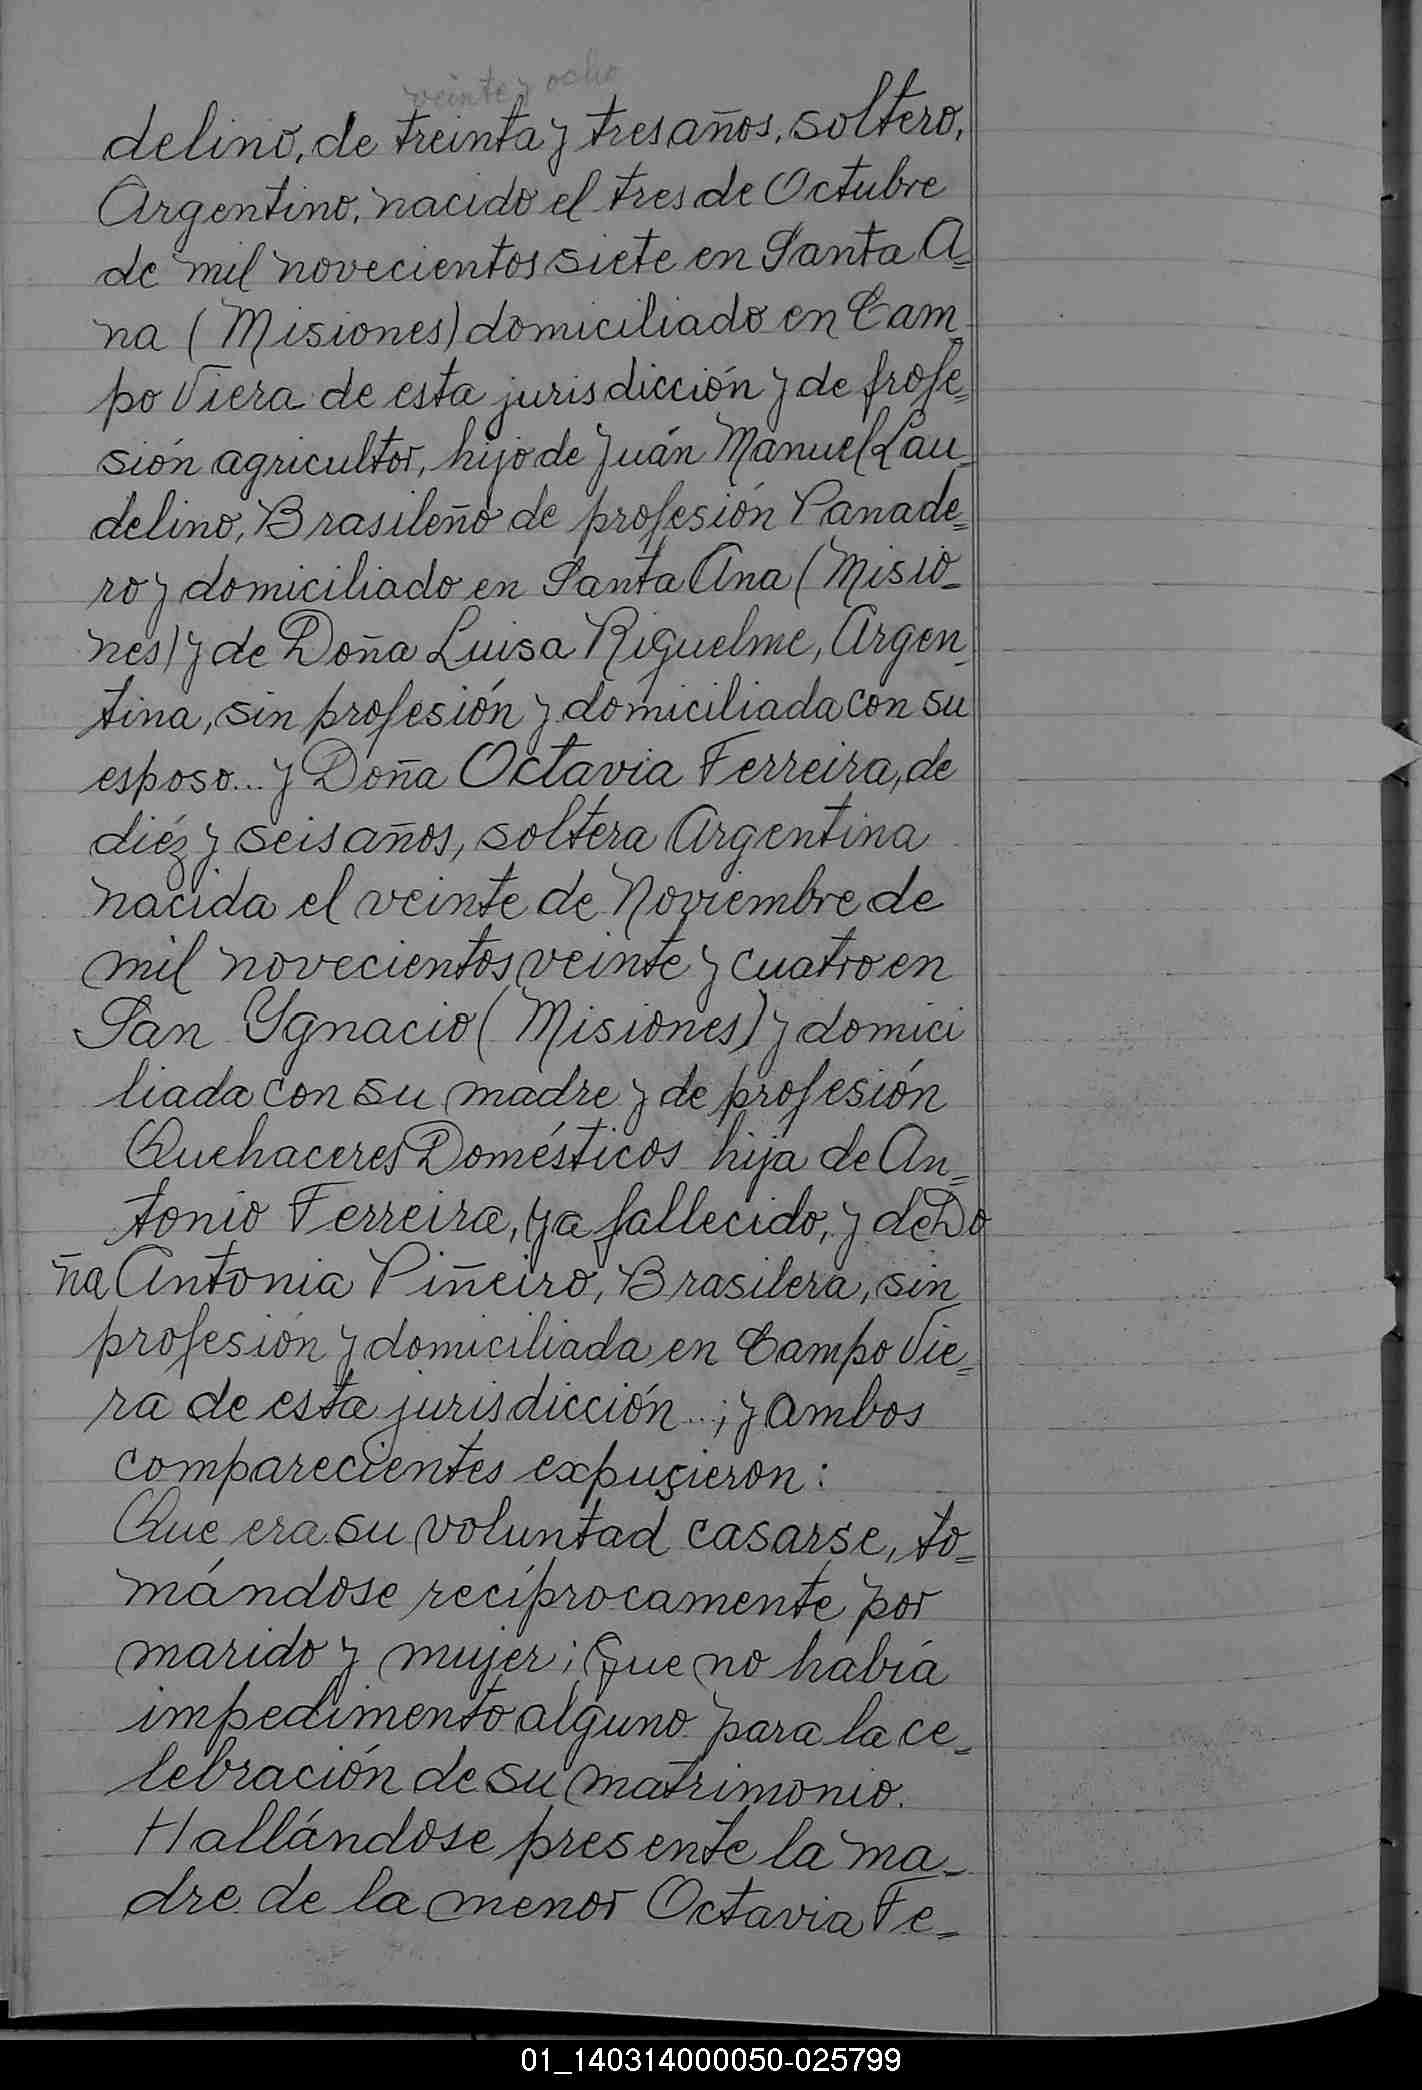 veinte y ocho
delino, de treinta y tres años, soltero,
Argentino, nacido el tres de Octubre
de mil novecientos siete en Santa A=
na (Misiones) domiciliado en Cam-
po Viera de esta jurisdicción y de profe=
sión agricultor, hijo de Juán Manuel Lau-
delino, Brasileño de profesión Panade=
ro y domiciliado en Santa Ana (Misio-
nes) y de Doña Luisa Riguelme, Argen-
tina, sin profesión y domiciliada con su
esposo... y Doña Octavia Ferreira, de
diéz y seis años, soltera Argentina
nacida el veinte de Noviembre de
mil novecientos veinte y cuatro en
San Ygnacio (Misiones) y domici
liada con su madre y de profesión
Quehaceres Domésticos hija de An=
tonio Ferreira, ya fallecido, y de Do
ña Antonia Piñeiro, Brasilera, sin
profesión y domiciliada en Campo Vie=
ra de esta jurisdicción...; y ambos
comparecientes expusieron:
Que era su voluntad casarse, to=
mándose recíprocamente por
marido y mujer; Que no había
impedimento alguno para la ce=
lebración de su matrimonio.
Hallándose presente la ma=
dre de la menor Octavia Fe=
01_140314000050-025799